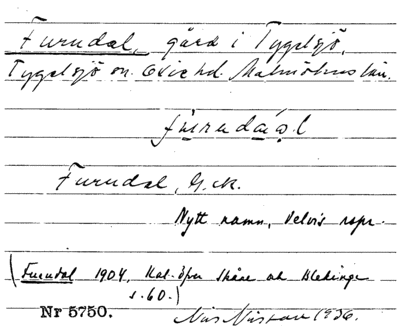 Furudal, gård i Tygelsjö,
Tygelsjö sn. Oxie hd. Malmöhus län.
Furudal, G.ek.
Nytt namn, delvis repr.
(Furudal 1904, Kal. öfver Skåne och Blekinge
s. 60.)
Nr 5750.
1926.